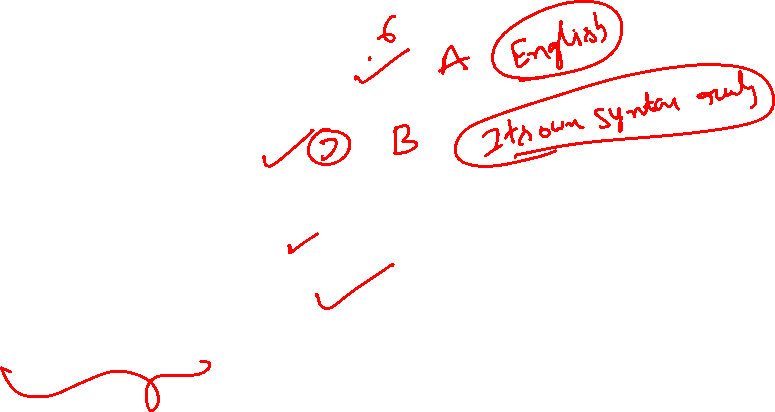 .6
A English
2 B Its own syntax only